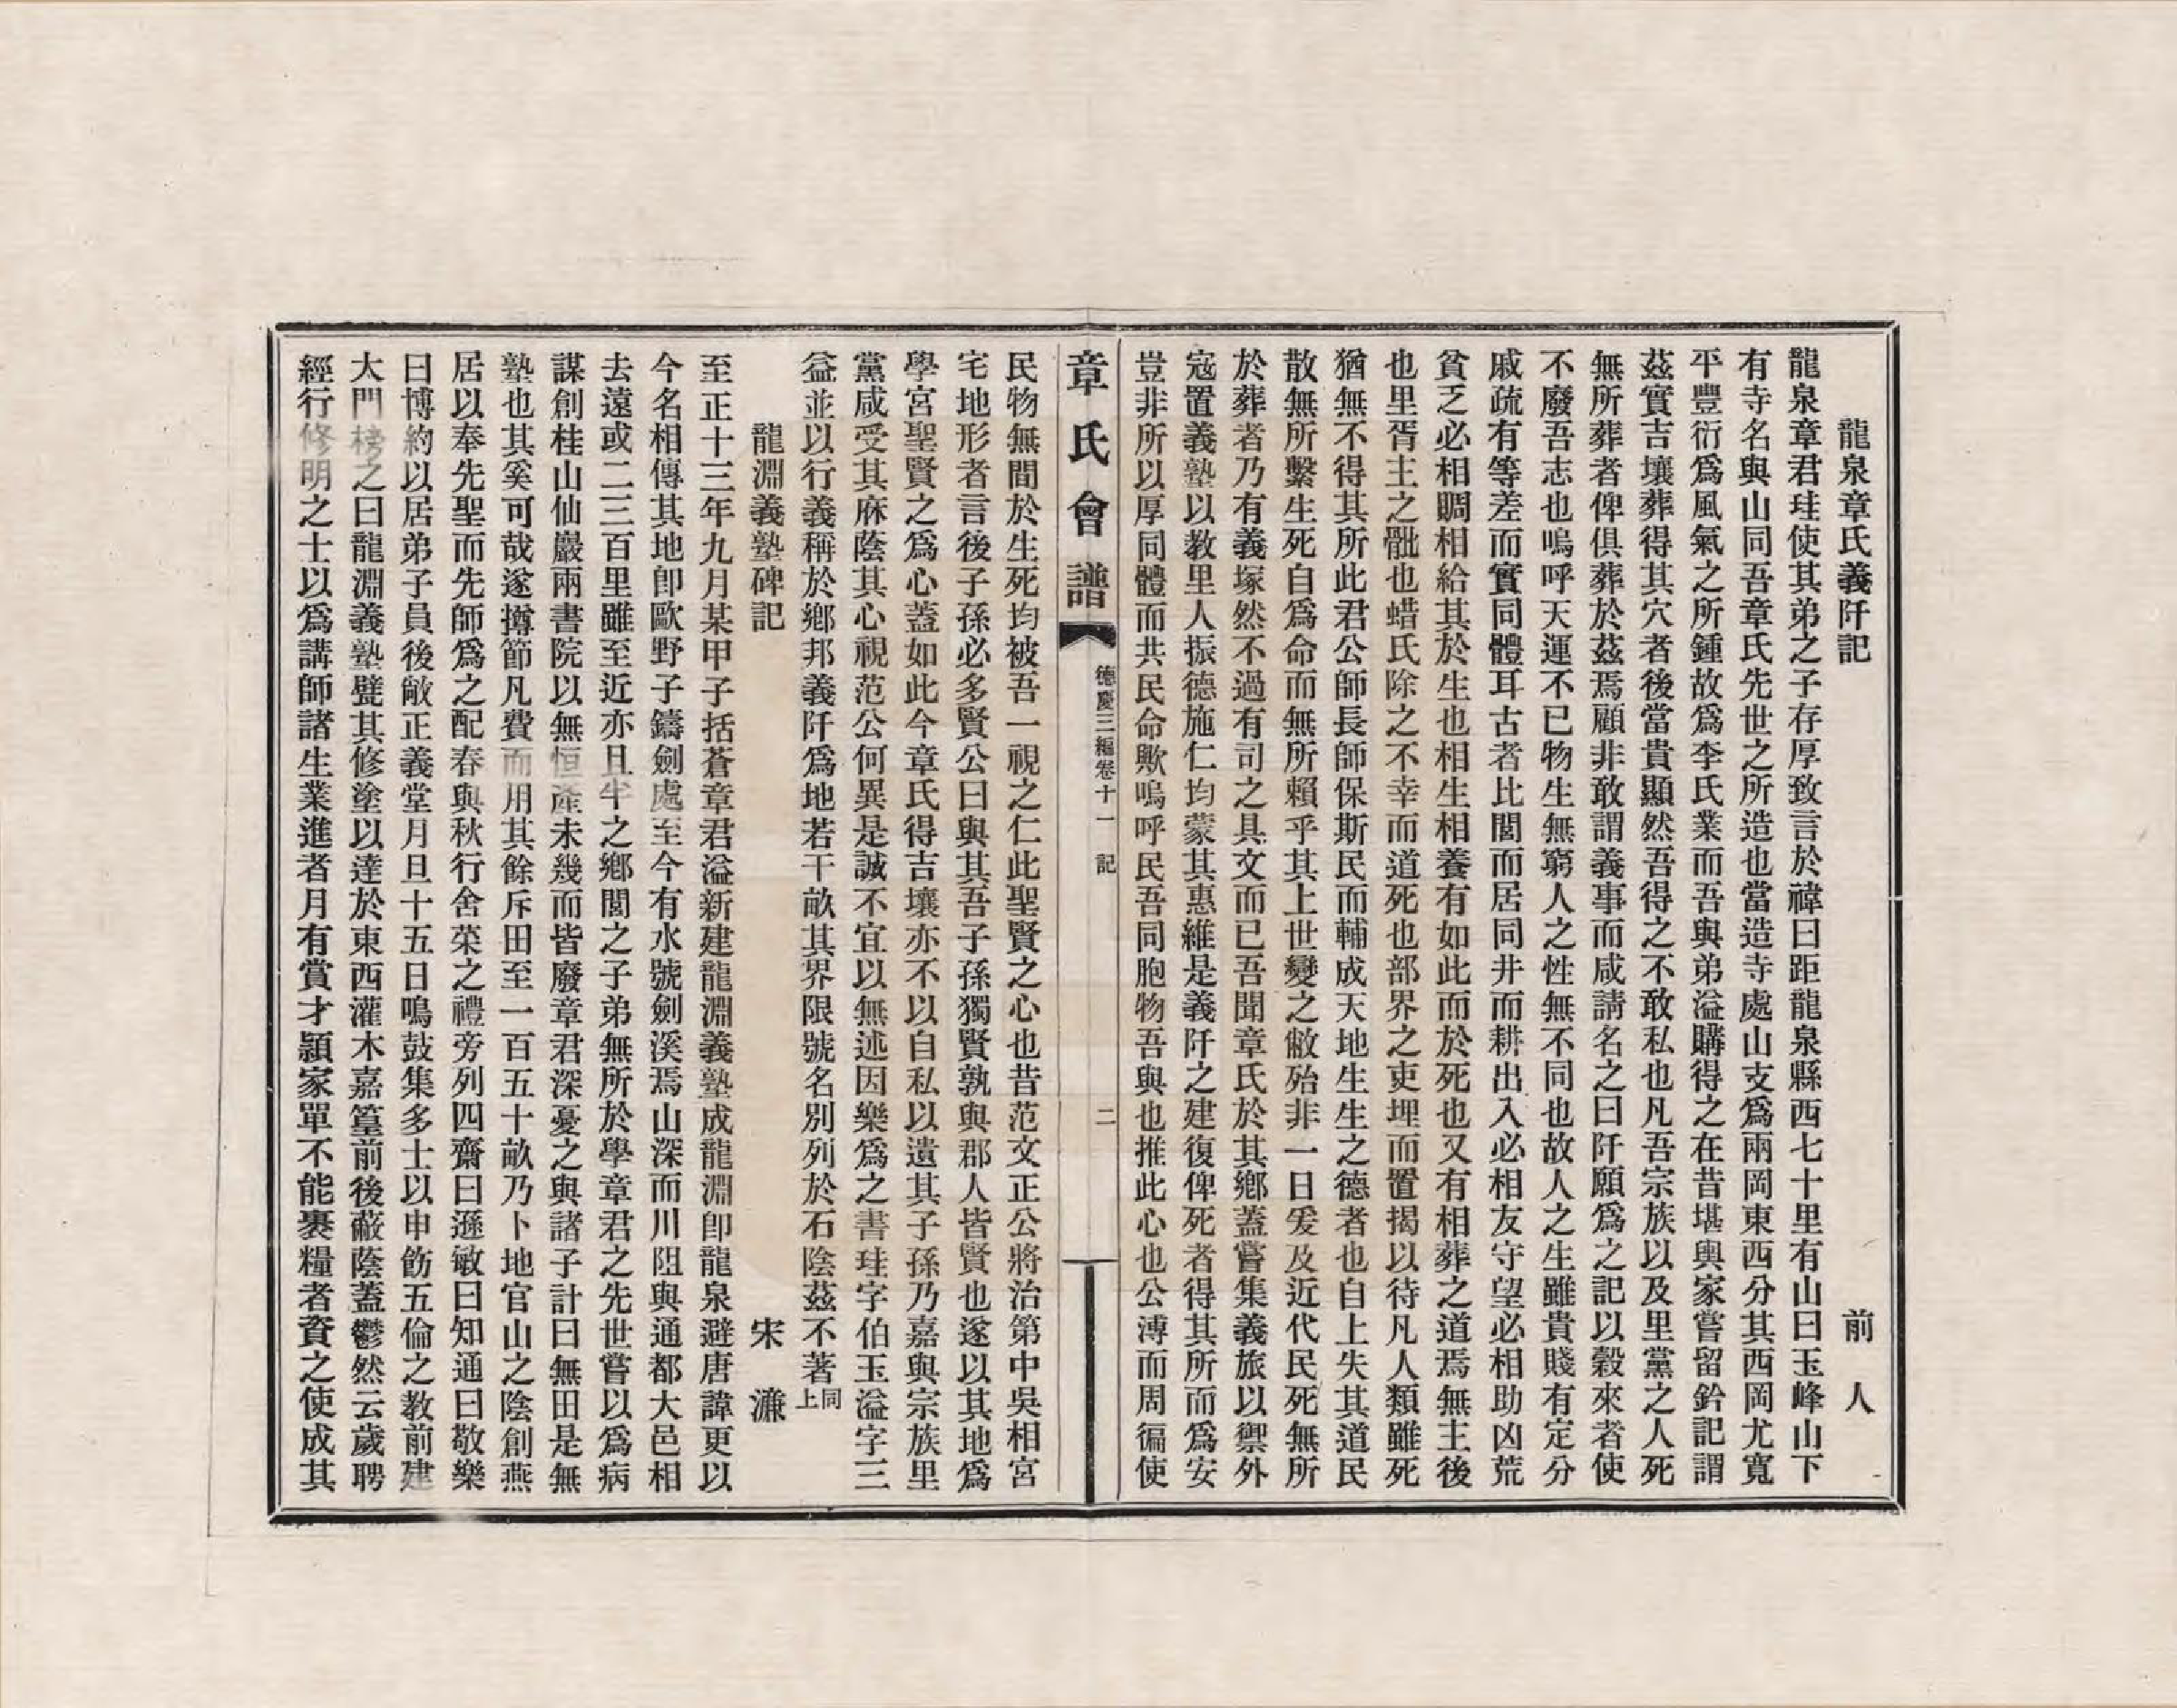 龍泉章氏義阡記　前人
龍泉章君珪使其弟之子存厚致言於禕曰距龍泉縣西七十里有山曰玉峰山下
有寺名與山同吾章氏先世之所造也當造寺處山支爲兩岡東西分其西岡尤寬
平豐衍爲風氣之所鍾故爲李氏業而吾與弟溢購得之在昔堪輿家嘗留鈐記謂
茲實吉壤葬得其穴者後當貴顯然吾得之不敢私也凡吾宗族以及里黨之人死
無所葬者俾俱葬於茲焉顧非敢謂義事而咸請名之曰阡願爲之記以穀來者使
不廢吾志也嗚呼天運不已物生無窮人之性無不同也故人之生雖貴賤有定分
戚疏有等差而實同體耳古者比閭而居同井而耕出入必相友守望必相助凶荒
貧乏必相賙相給其於生也相生相養有如此而於死也又有相葬之道焉無主後
也里胥主之骴也蜡氏除之不幸而道死也部界之吏埋而置揭以待凡人類雖死
猶無不得其所此君公師長師保斯民而輔成天地生生之德者也自上失其道民
散無所繫生死自爲命而無所賴乎其上世變之敝殆非一日爰及近代民死無所
於葬者乃有義塚然不過有司之具文而已吾聞章氏於其鄉蓋嘗集義旅以禦外
寇置義塾以教里人振德施仁均蒙其惠維是義阡之建復俾死者得其所而爲安
豈非所以厚同體而共民命歟嗚呼民吾同胞物吾與也推此心也公溥而周徧使
章氏會譜　德慶三編卷十一　記　二
民物無間於生死均被吾一視之仁此聖賢之心也昔范文正公將治第中吳相宮
宅地形者言後子孫必多賢公曰與其吾子孫獨賢孰與郡人皆賢也遂以其地爲
學宮聖賢之爲心蓋如此今章氏得吉壤亦不以自私以遺其子孫乃嘉與宗族里
黨咸受其庥蔭其心視范公何異是誠不宜以無述因樂爲之書珪字伯玉溢字三
益並以行義稱於鄉邦義阡爲地若干畝其界限號名別列於石陰茲不著同上
龍淵義塾碑記　宋濂
至正十三年九月某甲子括蒼章君溢新建龍淵義塾成龍淵卽龍泉避唐諱更以
今名相傳其地卽歐野子鑄劍處至今有水號劍溪焉山深而川阻與通都大邑相
去遠或二三百里雖至近亦且半之鄉閭之子弟無所於學章君之先世嘗以爲病
謀創桂山仙巖兩書院以無恒產未幾而皆廢章君深憂之與諸子計曰無田是無
塾也其奚可哉遂撙節凡費而用其餘斥田至一百五十畝乃卜地官山之陰創燕
居以奉先聖而先師爲之配春與秋行舍菜之禮旁列四齋曰遜敏曰知通曰敬樂
曰博約以居弟子員後敞正義堂月旦十五日鳴鼓集多士以申飭五倫之教前建
大門榜之曰龍淵義塾甓其修塗以達於東西灌木嘉篁前後蔽蔭蓋鬱然云歲聘
經行修明之士以爲講師諸生業進者月有賞才穎家單不能裹糧者資之使成其